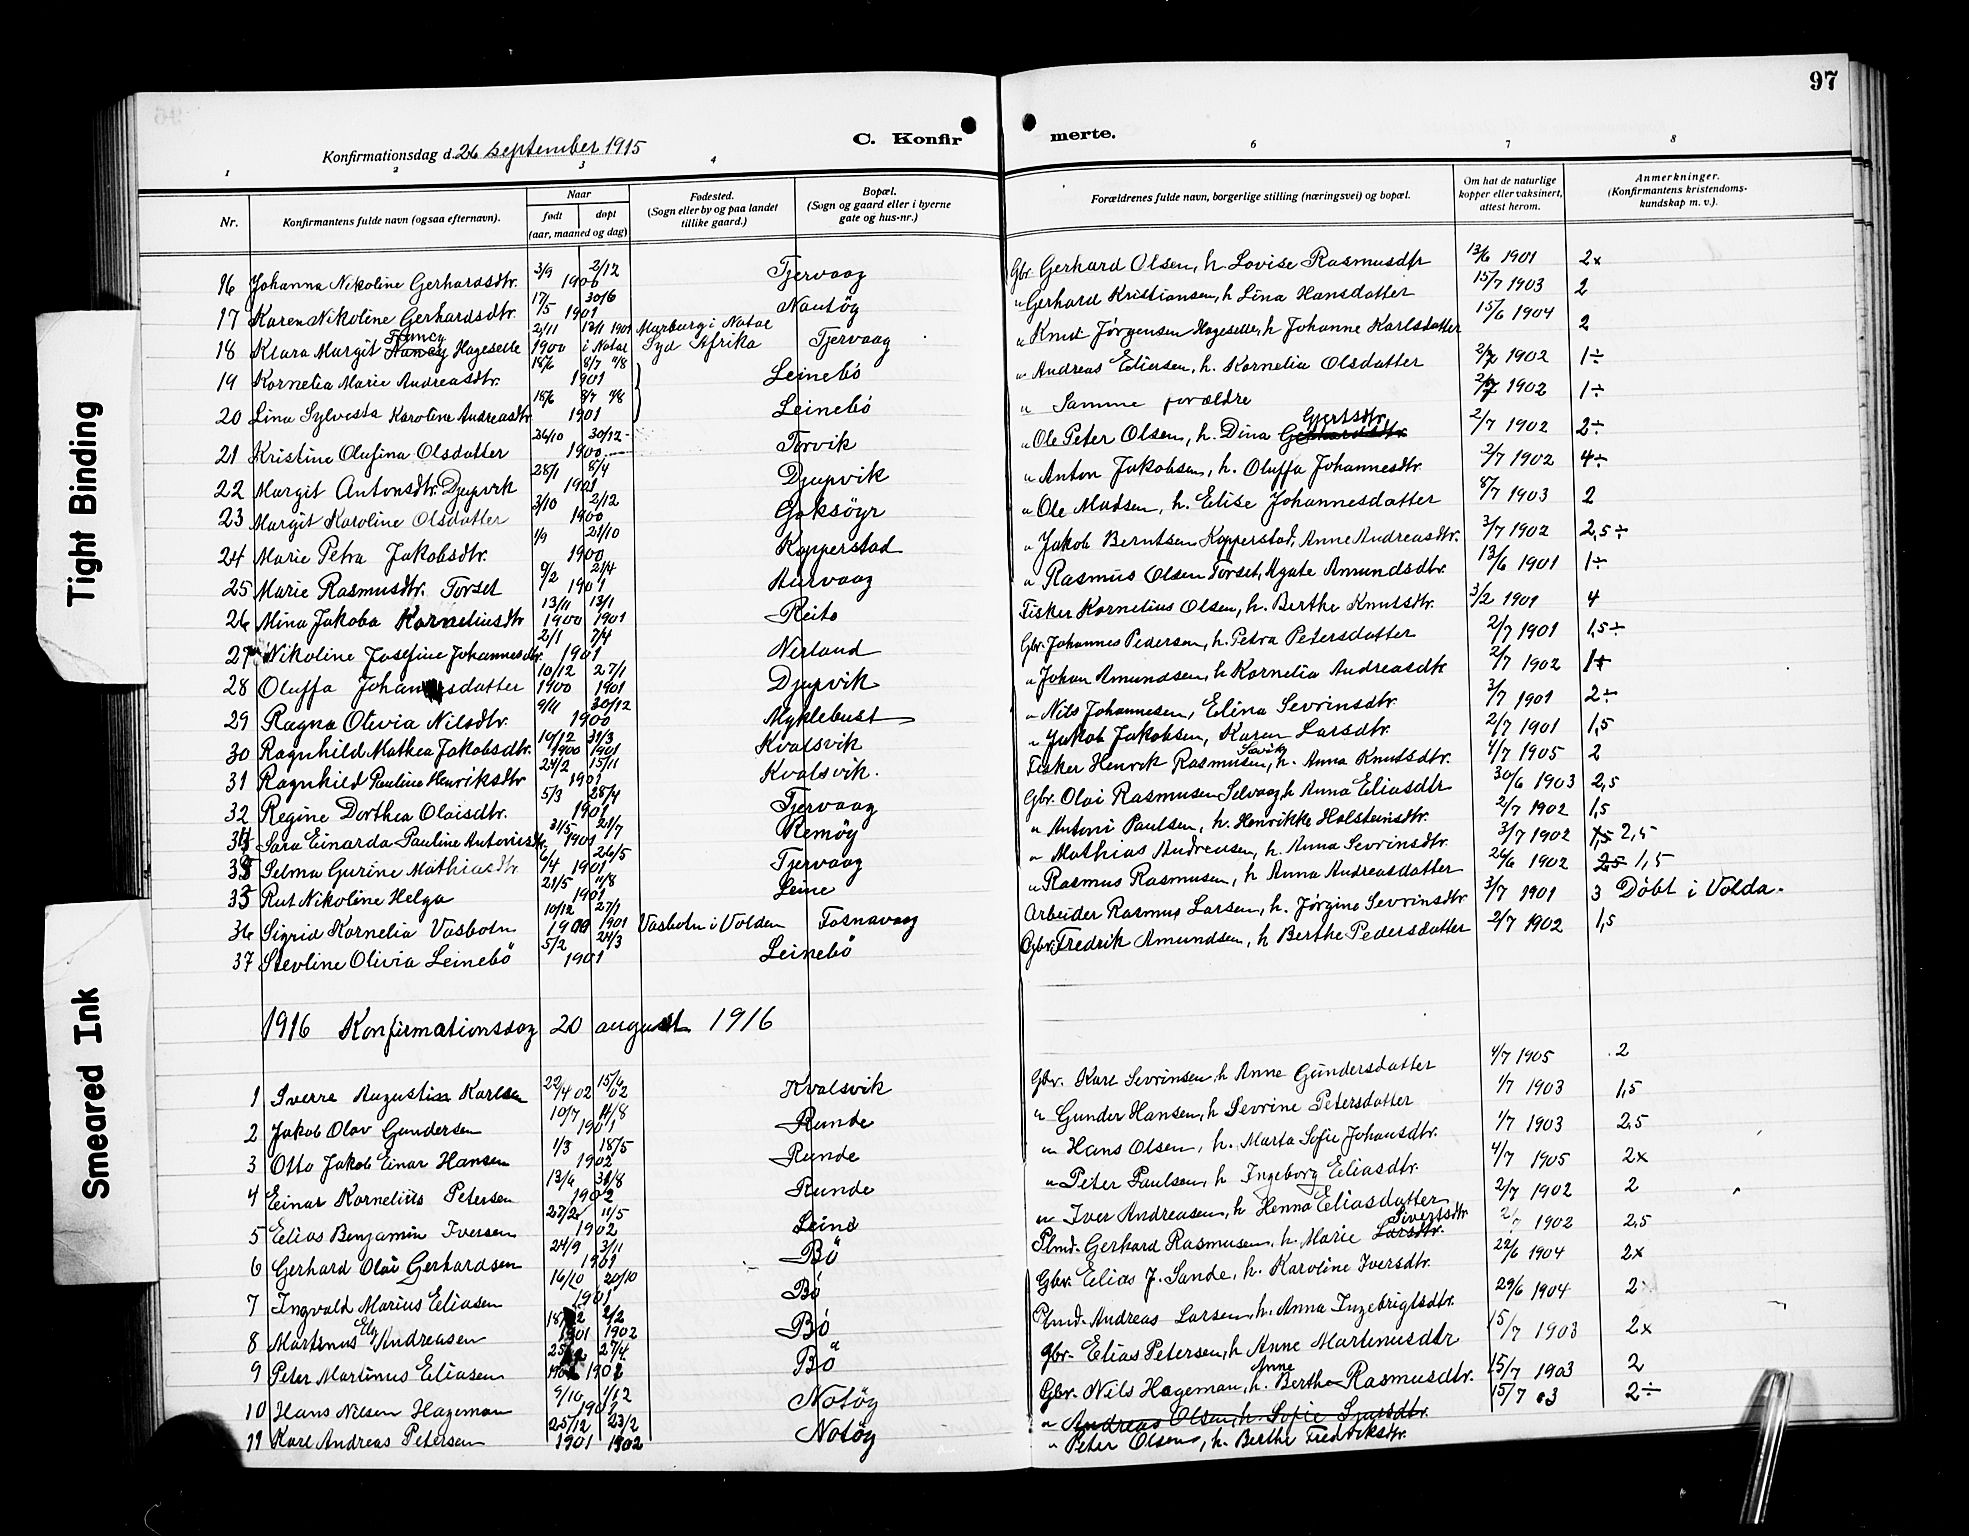 97
Konfirmationsdag d. 26 september 1915
C. Konfirmerte.
1 2 3 4 6 7 8
Nr. Konfirmantens fulde navn (ogsaa efternavn). Naar født døpt (aar, maaned og dag) Fødested. (Sogn eller by og paa landet tillike gaard.) Bopæl. (Sogn og gaard eller i byerne gate og hus-nr.) Forældrenes fulde navn, borgerlige stilling (næringsvei) og bopæl. Om hat de naturlige kopper eller vaksinert, attest herom. Anmerkninger. (Konfirmantens kristendomskundskap m. v.).
16 Johanna Nikoline Gerhardsdtr. 3/9 2/12 1900 Tjervaag Gbr. Gerhard Olsen, h. Lovise Rasmusdtr 13/6 1901 2x
17 Karen Nikoline Gerhardsdtr. 17/5 30/6 1901 Nautöy " Gerhard Kristiansen, h. Lina Hansdatter 15/7 1903 2
18 Klara Margit Nancy Fancy Hageselle 2/11 1900 13/1 1901 i Natal Marburg i Natal Syd Afrika Tjervaag " Knut Jørgensen Hageselle, h. Johanne Karlsdatter 15/6 1904 2
19 Kornelia Marie Andreasdtr. 18/6 8/7 4/8 1901 Leinebö " Andreas Eliasen, h. Kornelia Olsdatter 2/7 1902 1÷
20 Lina Sylvesta Karoline Andreasdtr 18/6 8/7 4/8 1901 Leinebö " Samme forældre 2/7 1902 1÷
21 Kristine Olufina Olsdatter 26/10 30/12 1900 Torvik " Ole Peter Olsen, h. Dina Gerhardsdtr. Gjertsdtr. 2/7 1902 2÷
22 Margit Antonsdtr. Djupvik 28/1 8/4 1901 Djupvik " Anton Jakobsen, h. Oluffa Johannesdtr. 3/7 1902 4÷
23 Margit Karoline Olsdatter 3/10 2/12 1900 Goksöyr " Ole Madsen, h. Elise Johannesdatter 8/7 1903 2
24 Marie Petra Jakobsdtr. 1/9 21/10 1900 Kopperstad " Jakob Berntsen Kopperstad, Anne Andreasdtr. 3/7 1902 2,5÷
25 Marie Rasmusdtr. Torset 9/2 21/4 1901 Aurvaag " Rasmus Olsen Torset, Agate Amundsdtr. 13/6 1901 1÷
26 Mina Jakoba Korneliusdtr 13/11 1900 13/1 1901 Reito Fisker Kornelius Olsen, h. Berthe Knutsdtr. 3/2 1901 4
27 Nikoline Josefine Johannesdtr. 2/1 7/4 1901 Nerland Gbr. Johannes Pedersen, h. Petra Petersdatter 2/7 1901 1,5÷
28 Oluffa Johannesdatter 10/12 1900 27/1 1901 Djupvik " Johan Amundsen, h. Kornelia Andreasdtr 2/7 1902 1÷
29 Ragna Olivia Nilsdtr. 9/11 30/12 1900 Myklebust " Nils Johannesen, Elina Sevrinsdtr. 3/7 1901 2÷
30 Ragnhild Mathea Jakobsdtr. 10/12 1900 31/3 1901 Kvalsvik " Jakob Jakobsen, Karen Larsdtr. 2/7 1901 1,5
31 Ragnhild Pauline Henriksdtr 24/2 15/11 1901 Kvalsvik. Fisker Henrik Rasmusen Sævik, h. Anna Knutsdtr. 4/7 1905 2
32 Regine Dorthea Olaisdtr. 5/3 28/4 1901 Tjervaag Gbr. Olai Rasmusen Selvaag, h. Anna Eliasdtr 30/6 1903 2,5
Sara Einarda Pauline Antonisdtr. 31/5 21/7 1901 Remöy " Antoni Paulsen, h. Henrikke Holsteinsdtr. 2/7 1902 1,5
Selma Gurine Mathiasdtr 6/4 26/5 1901 Tjervaag " Mathias Andreasen, h. Anna Sevrinsdtr. 3/7 1902 1,5 2,5
35 Rut Nikoline Helga 21/5 11/8 1901 Leine " Rasmus Rasmusen, h. Anna Andreasdatter 26/6 1902 2,5 1,5
36 Sigrid Kornelia Vasbotn 10/12 1900 27/1 1901 Vasbotn i Volden Fosnavaag Arbeider Rasmus Larsen, h. Jørgine Sevrinsdtr 3/7 1901 3 Döbt i Volda.
37 Stevline Olivia Leinebö 5/2 24/3 1901 Leinebö Gbr. Fredrik Amundsen, h. Berthe Pedersdatter 2/7 1902 1,5
1916 Konfirmationsdag 20 august 1916
1 Sverre Augustin Karlsen 22/4 02 15/6 02 Kvalsvik Gbr. Karl Sevrinsen, h. Anne Gundersdatter 4/7 1905 2
2 Jakob Olav Gundersen 10/7 11/8 1901 Runde " Gunder Hansen, h. Sevrine Petersdatter 1/7 1903 1,5
3 Otto Jakob Einar Hansen 1/3 18/5 1902 Runde " Hans Olsen, h. Marta Sofie Johansdtr. 1/7 1903 2,5
4 Einar Kornelius Petersen 13/6 31/8 1902 Runde " Peter Paulsen, h. Ingeborg Eliasdtr. 4/7 1905 2x
5 Elias Benjamin Iversen 27/2 11/5 1902 Leine " Iver Andreasen, h. Henna Eliasdatter 2/7 1902 2
6 Gerhard Olai Gerhardsen 24/9 3/11 1901 Bö Plmd. Gerhard Rasmusen, h. Marie Larsdtr. Sivertsdtr 2/7 1902 2,5
7 Ingvald Marius Eliasen 16/10 20/10 1901 Bö Gbr. Elias J. Sande, h. Karoline Iversdtr. 22/6 1904 2x
8 Martinus Elg Andreasen 18/12 1901 2/2 1902 Bö Plmd. Andreas Larsen, h. Anna Ingebrigtsdtr. 29/6 1904 2
9 Peter Martinus Eliasen 27/4 1902 Bö Gbr. Elias Petersen, h. Anne Martinusdtr 15/7 1903 2x
10 Hans Nilsen Hageman 9/10 1/12 1901 Notöy Gbr. Nils Hageman, h. Anne Berthe Rasmusdtr. 15/7 1903 2
11 Karl Andreas Petersen 25/12 1901 23/2 1902 Notöy " Andreas Olsen, h. Sofie 15/7 03 2÷
" Peter Olsen, h. Berthe Fredriksdtr.
Tight Binding
Smeared Ink